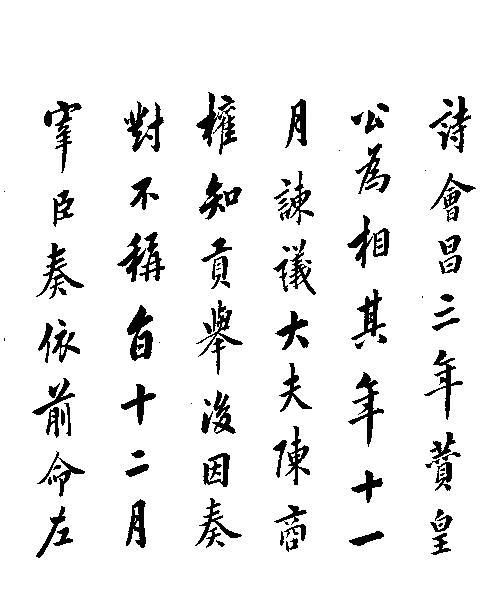 詩會昌三年贊皇
公為相其年十一
月諫議大夫陳商
權知貢舉後因奏
對不稱旨十二月
宰臣奏依前命左